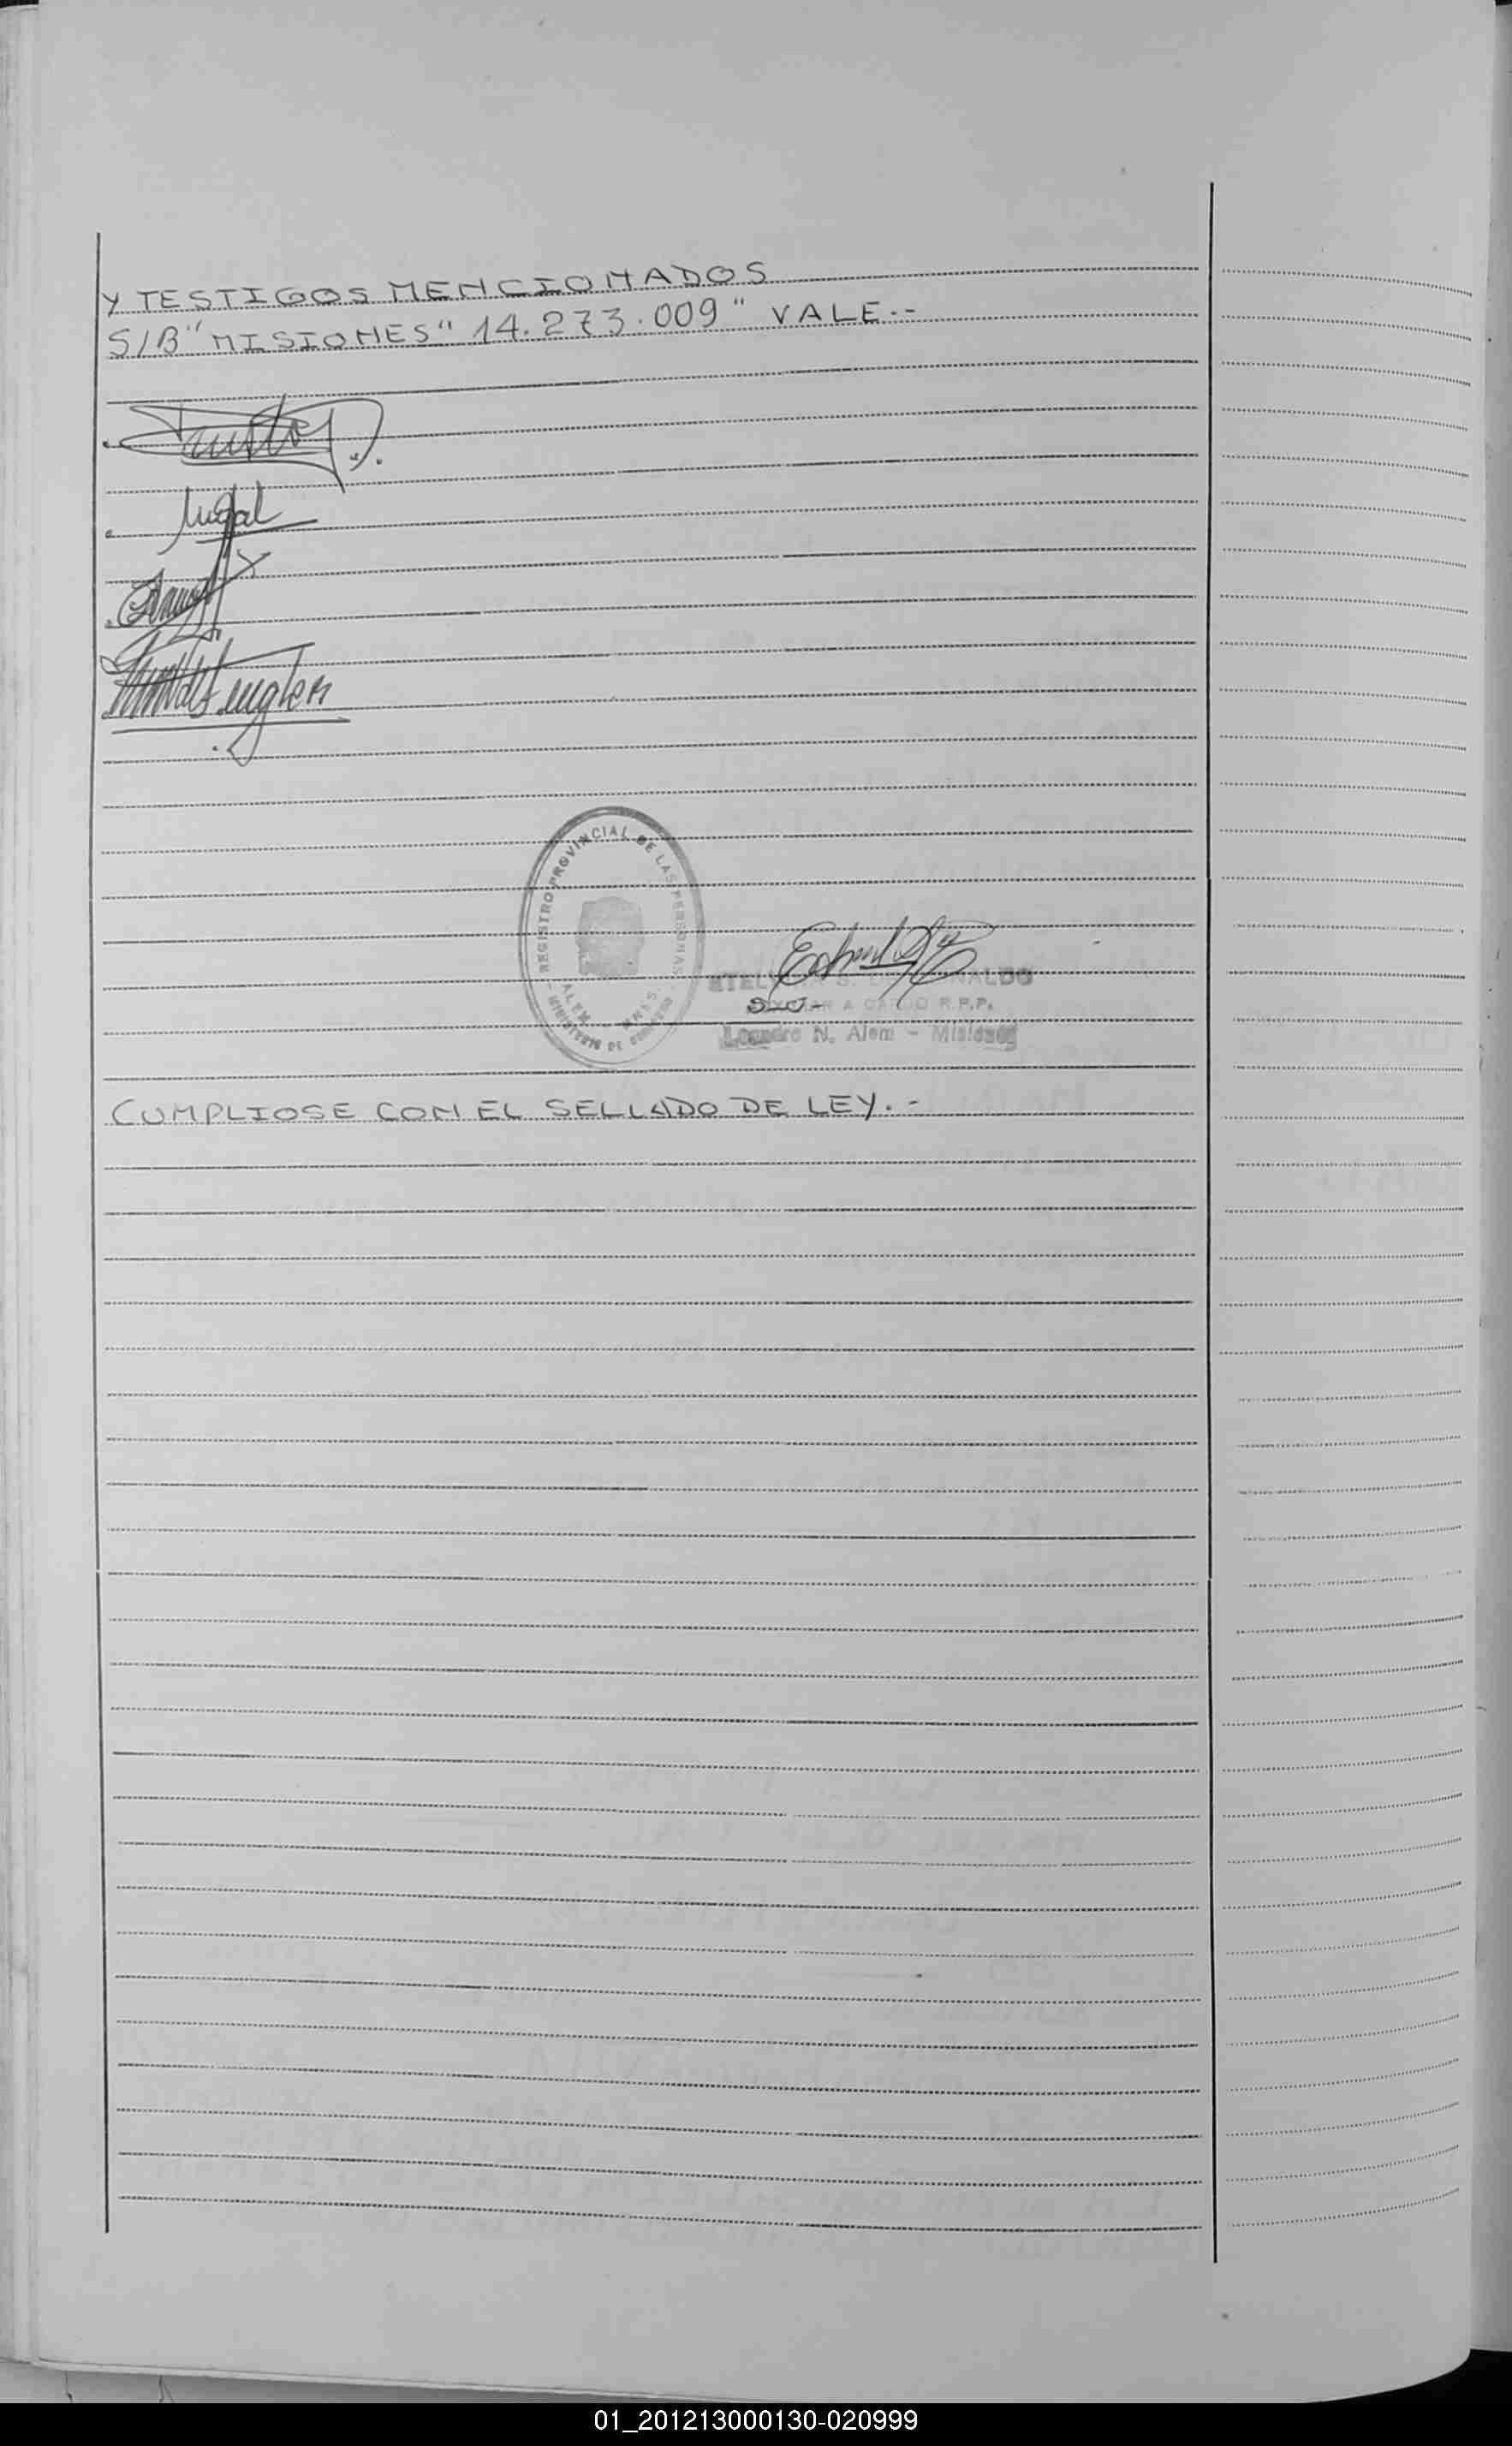 Y TESTIGOS MENCIONADOS
S/B "MISIONES" 14.273.009" VALE.-
REGISTRO PROVINCIAL DE LAS PERSONAS
ALEM MNES.
MINISTERIO DE GOBIERNO
A CARGO R.P.P.
Leandro N. Alem - Misiones
CUMPLIOSE CON EL SELLADO DE LEY.-
01_201213000130-020999